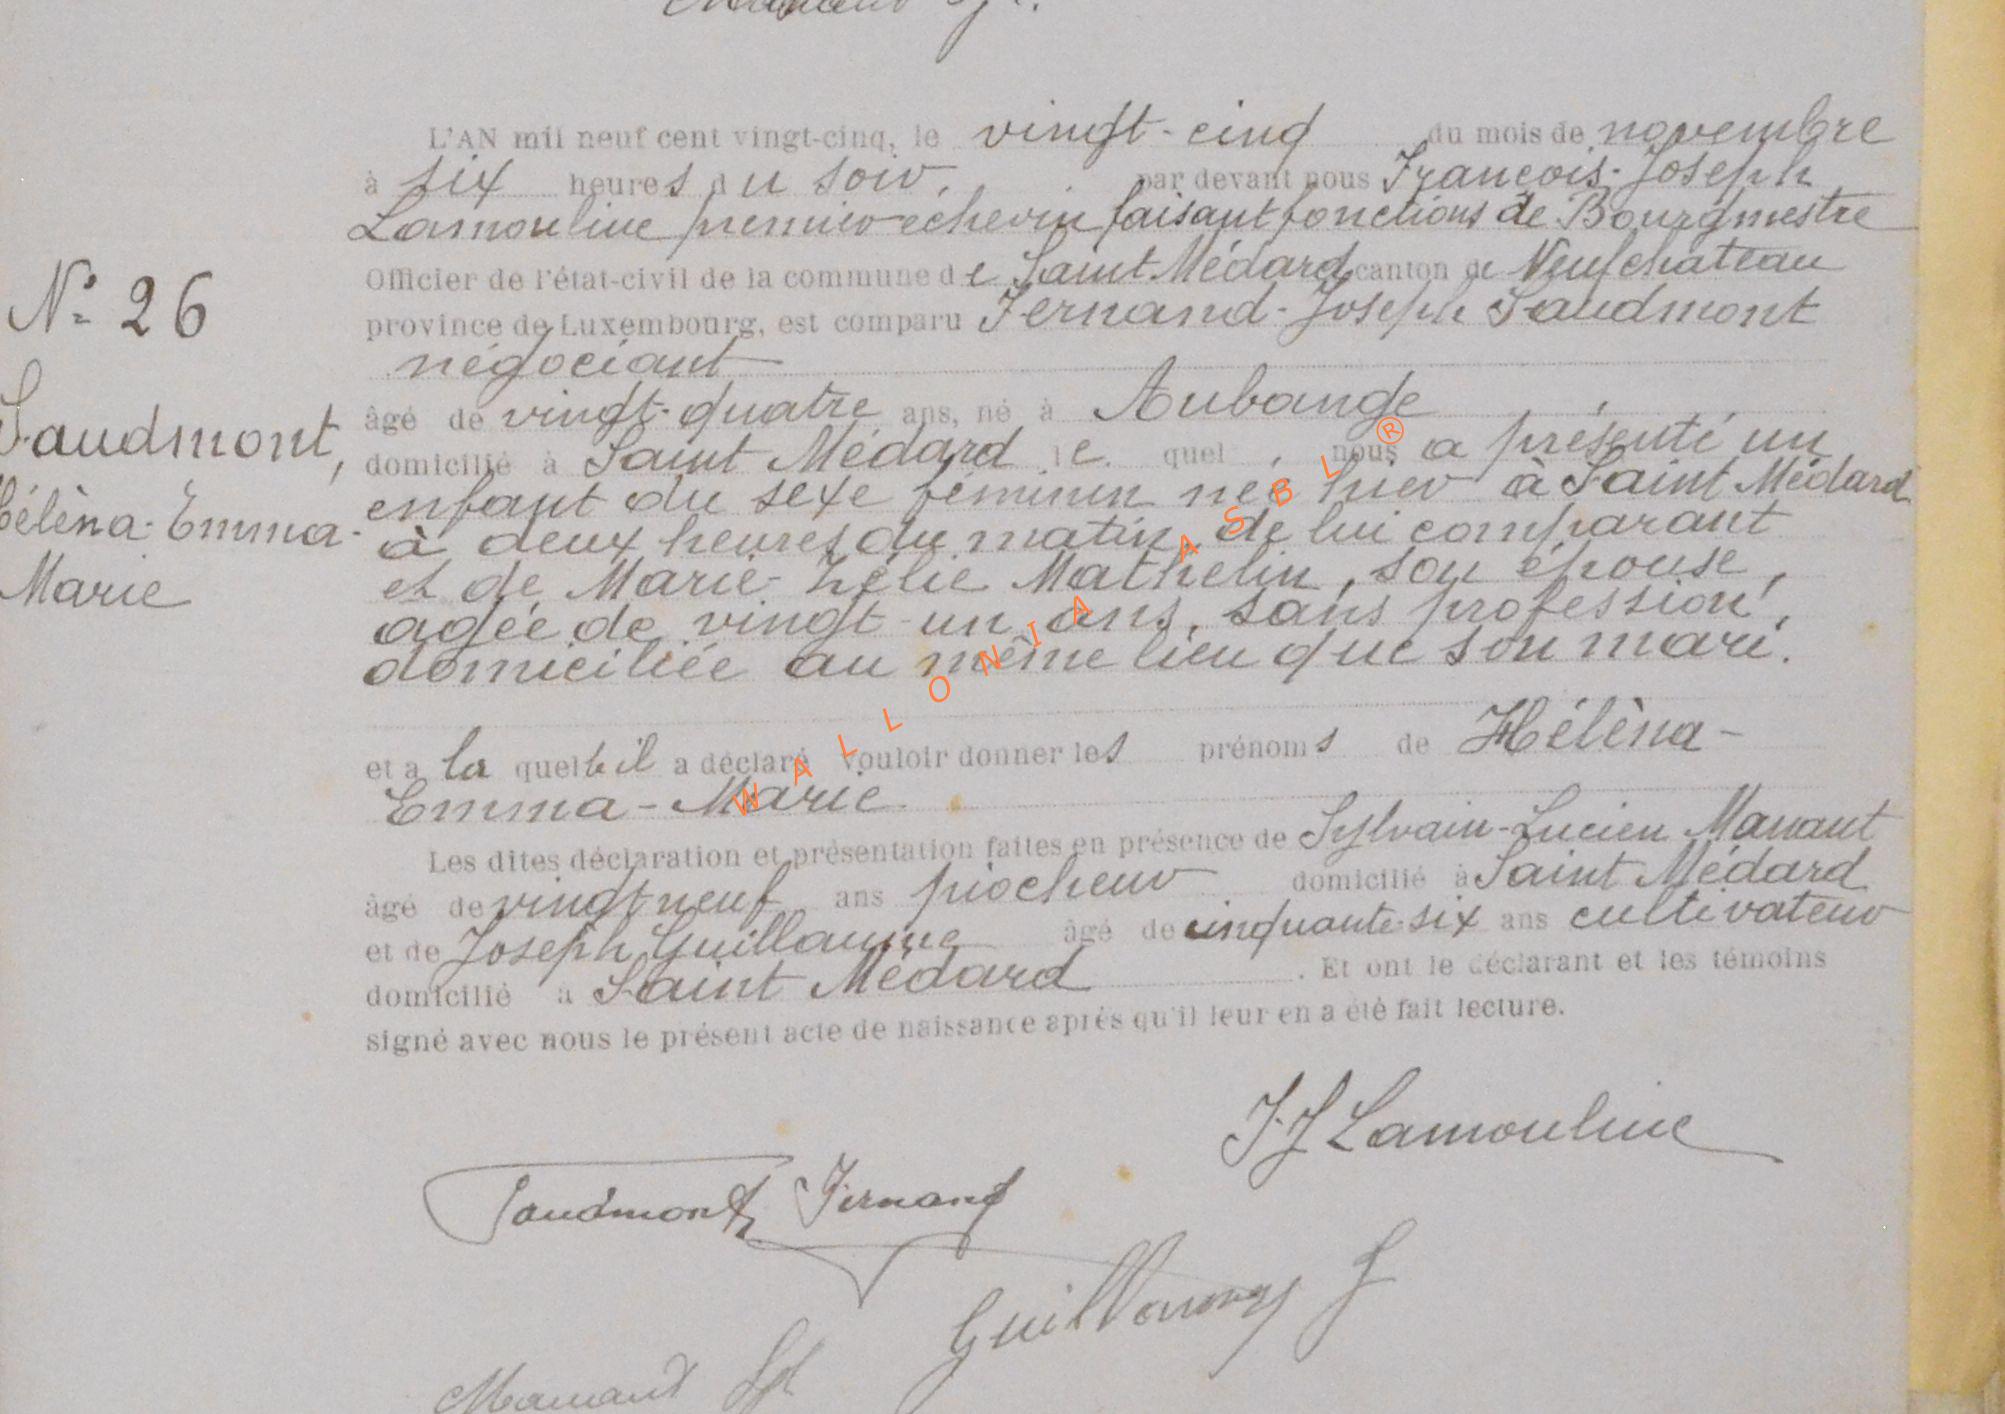 L'AN mil neuf cent vingt-cinq, le vingt-cinq du mois de novembre
à six heures du soir, par devant nous François-Joseph
Lamouline premier échevin faisant fonctions de Bourgmestre
Officier de l'état-civil de la commune de Saint Médard canton de Neufchâteau
province de Luxembourg, est comparu Fernand-Joseph Saudmont
négociant
âgé de vingt-quatre ans, né à Aubange
domicilié à Saint Médard lequel nous a présenté un
enfant du sexe féminin née hier à Saint Médard
à deux heures du matin, de lui comparant
et de Marie-Zélie Mathelin, son épouse,
agée de vingt-un ans, sans profession,
domiciliée au même lieu que son mari.
et a laquelle il a déclaré vouloir donner les prénoms de Hélèna-
Emma-Marie
Les dites déclaration et présentation faites en présence de Sylvain-Lucien Manant
âgé de vingt neuf ans piocheur domicilié à Saint Médard
et de Joseph Guillaume âgé de cinquante-six ans cultivateur
domicilié à Saint Médard. Et ont le déclarant et les témoins
signé avec nous le présent acte de naissance après qu'il leur en a été fait lecture.
N° 26
Saudmont,
Hélèna-Emma-
Marie
F. J Lamouline
Saudmont Fernand
Guillaume J
Manant Syl
WALLONIA ASBL ®